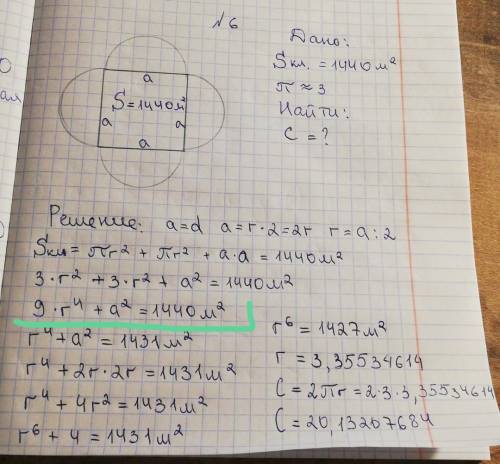 №6
Дано:
Sкл. = 1440 м²
π ≈ 3
Найти:
C = ?
a
S = 1440 м²
a a
a
Решение: a = d a = r · 2 = 2r r = a : 2
Sкл = πr² + πr² + a · a = 1440 м²
3 · r² + 3 · r² + a² = 1440 м²
9 · r⁴ + a² = 1440 м²
r⁴ + a² = 1431 м²
r⁴ + 2r · 2r = 1431 м²
r⁴ + 4r² = 1431 м²
r⁶ + 4 = 1431 м²
r⁶ = 1427 м²
r = 3,35534614
C = 2πr = 2·3·3,35534614
C = 20,13207684